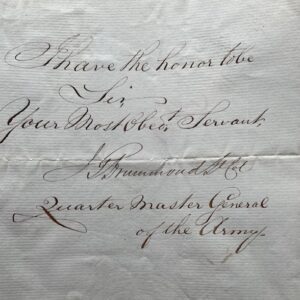 I have the honor to be
Sir,
Your Most Obedt. Servant,
J G Drummond Lt Col
Quarter Master General
of the Army